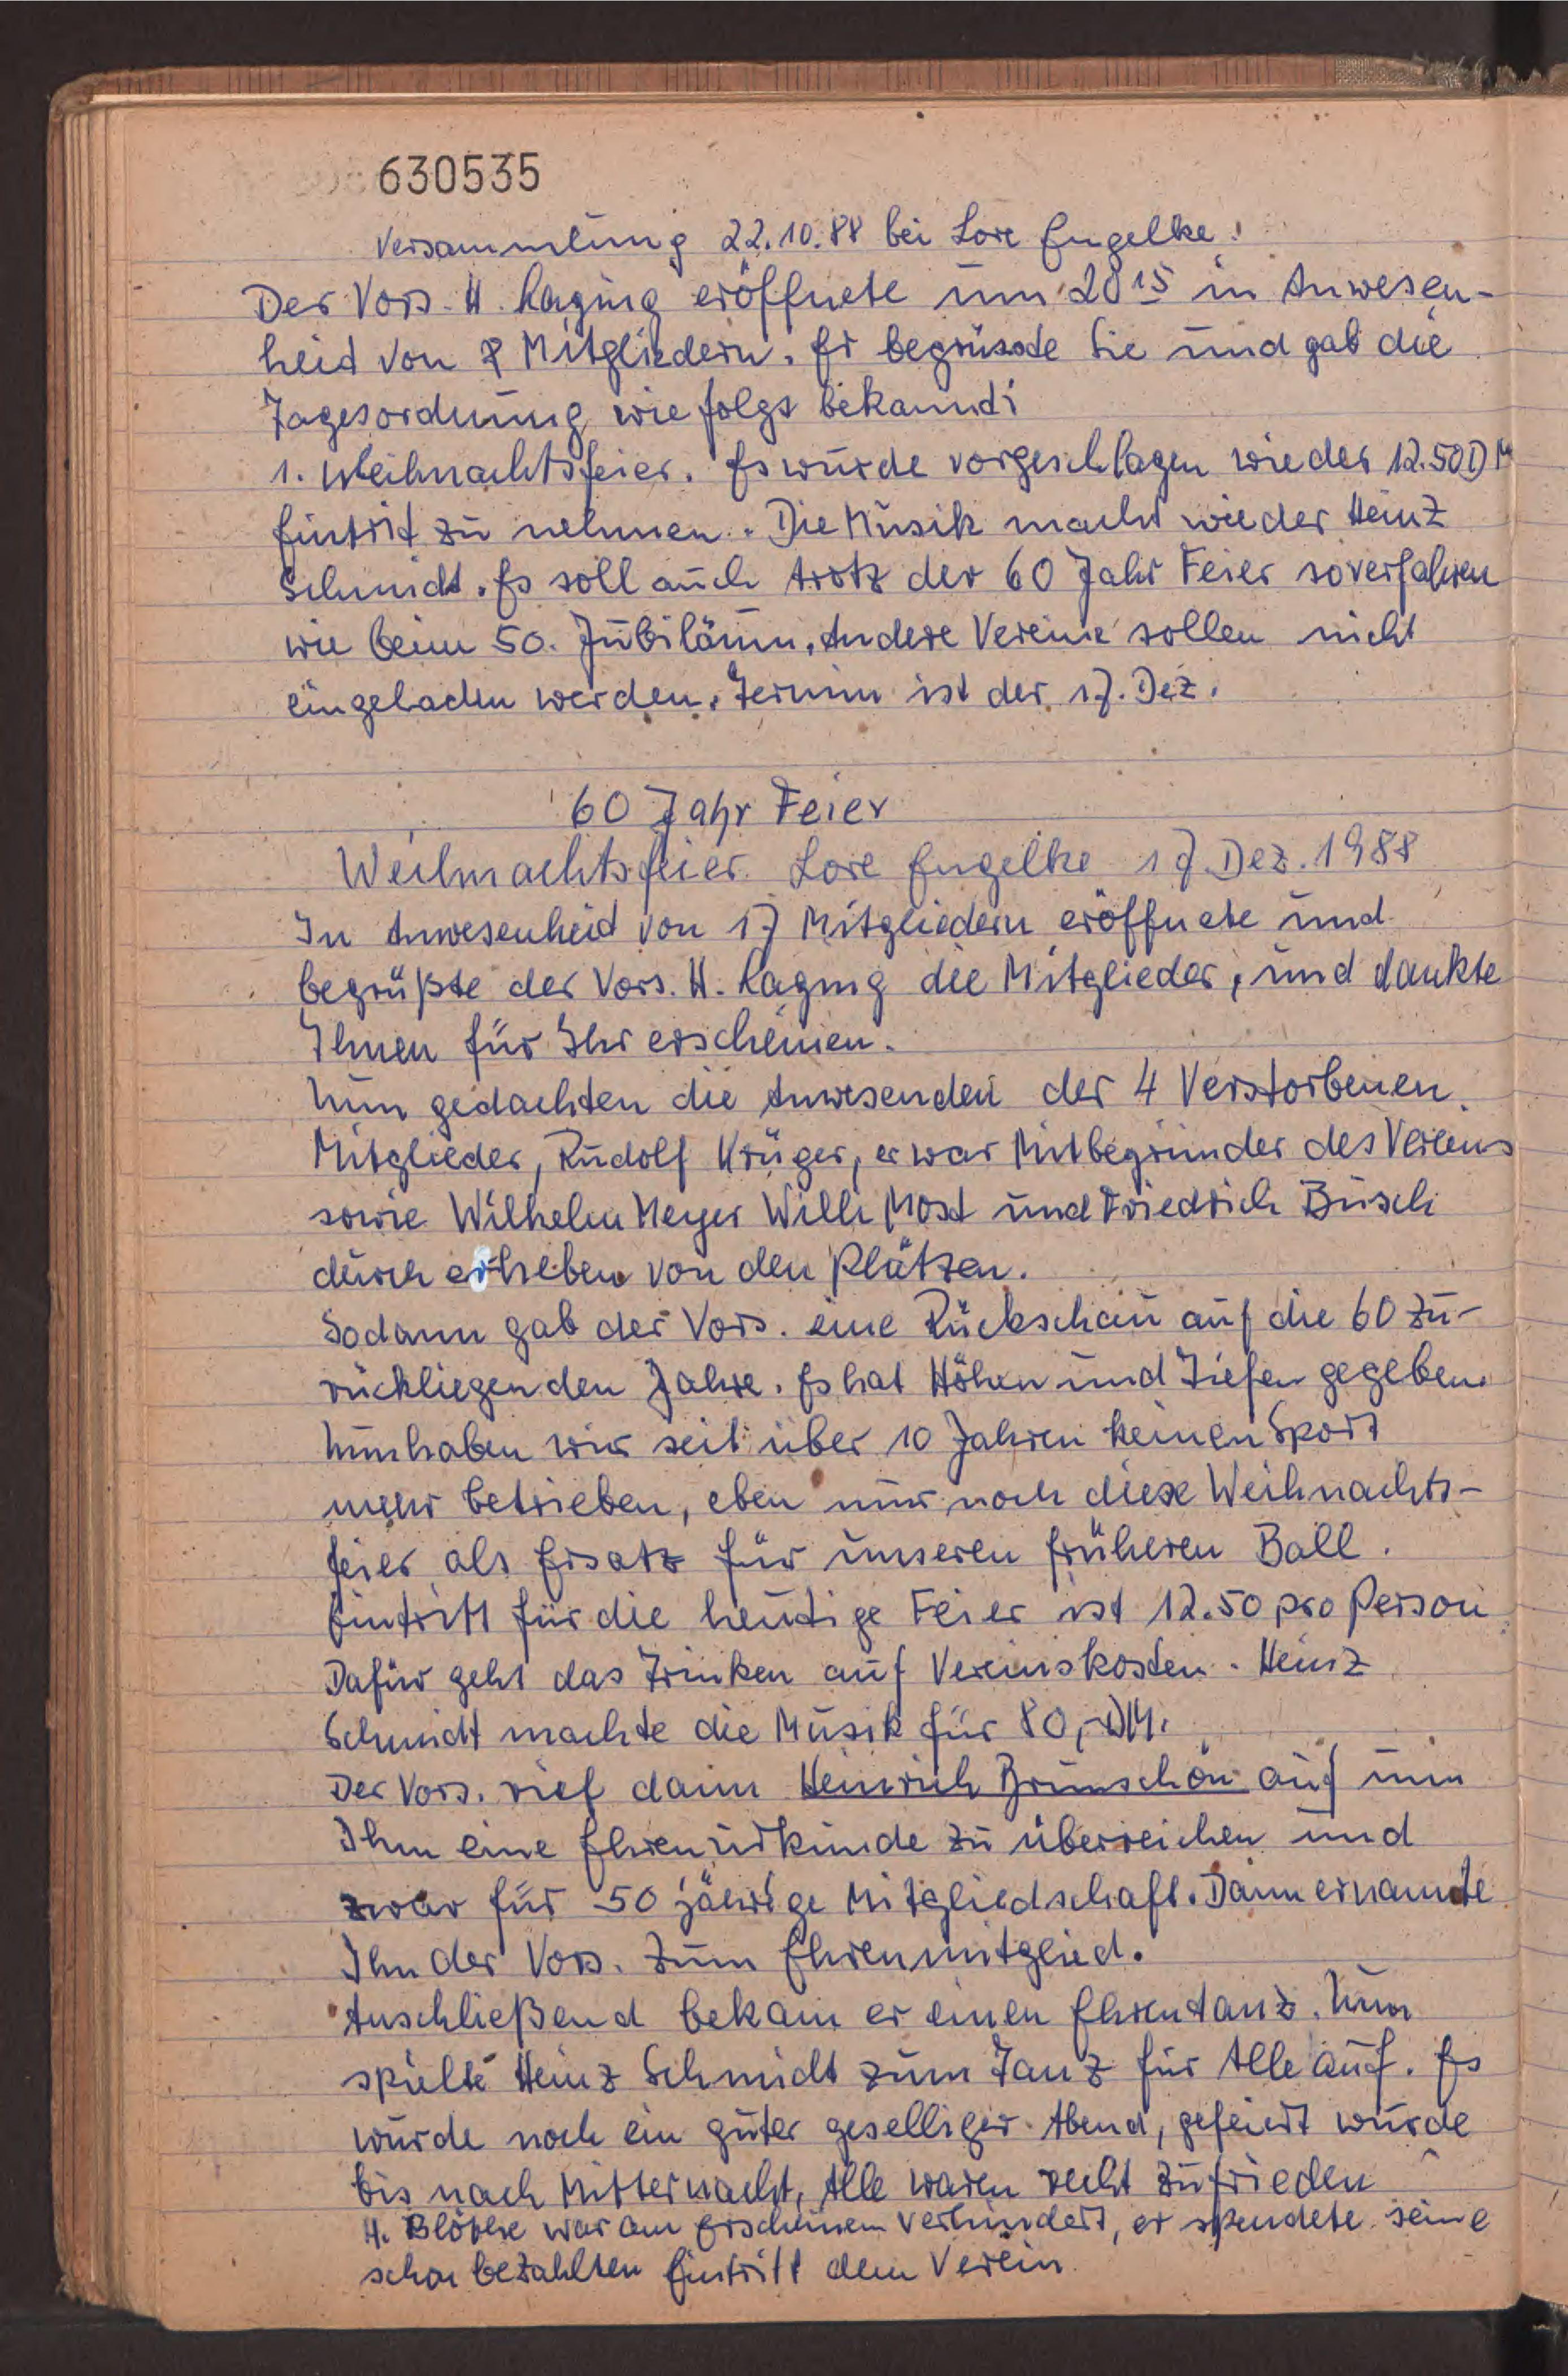 630535
Versammlung 22.10.88 bei Lore Engelke!
Der Vors. H. Raging eröffnete um 20 15 in Anwesen-
heid von 8 Mitgliedern. Er begrüsste Sie und gab die
Tagesordnung wie folgt bekannd:
1. Weihnachtsfeier. Es wurde vorgeschlagen wieder 12.50 DM
Eintritt zu nehmen. Die Musik macht wieder Heinz
Schmidt. Es soll auch trotz der 60 Jahr Feier so verfahren
wie beim 50. Jubiläum. Andere Vereine sollen nicht
eingeladen werden. Termin ist der 17. Dez.
60 Jahr Feier
Weihnachtsfeier Lore Engelke 17. Dez. 1988
In Anwesenheid von 17 Mitgliedern eröffnete und
begrüßte der Vors. H. Raging die Mitglieder, und dankte
Ihnen für Ihr erscheinen.
Nun gedachten die Anwesenden der 4 Verstorbenen
Mitglieder, Rudolf Krüger, er war Mitbegründer des Vereins
sowie Wilhelm Meyer Willi Most und Friedrich Busch
durch erheben von den Plätzen.
Sodann gab der Vors. eine Rückschau auf die 60 zu-
rückliegenden Jahre. Es hat Höhen und Tiefen gegeben.
Nun haben wir seit über 10 Jahren keinen Sport
mehr betrieben, eben nur noch diese Weihnachts-
feier als Ersatz für unseren früheren Ball.
Eintritt für die heutige Feier ist 12.50 pro Person
Dafür geht das Trinken auf Vereinskosten. Heinz
Schmidt machte die Musik für 80,-DM.
Der Vors. rief dann Heinrich Brunschön auf um
Ihm eine Ehrenurkunde zu überreichen und
zwar für 50 jährige Mitgliedschaft. Dann ernannte
Ihn der Vors. zum Ehrenmitglied.
Anschließend bekam er einen Ehrentanz. Nun
spielte Heinz Schmidt zum Tanz für Alle auf. Es
wurde noch ein guter geselliger Abend, gefeiert wurde
bis nach Mitternacht, Alle waren recht zufrieden
H. Blöthe war am Erscheinen verhindert, er spendete seine
schon bezahlten Eintritt dem Verein